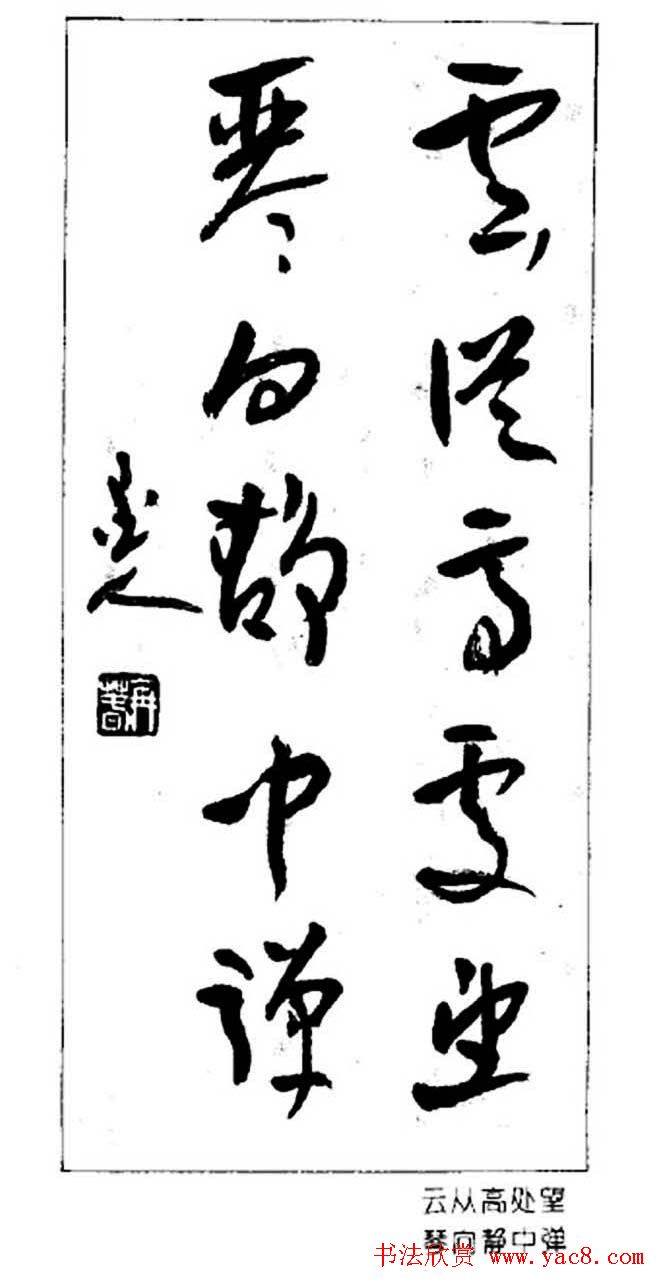 雲從高處望
琴向靜中彈
云从高处望
琴向静中弹
书法欣赏 www.yac8.com